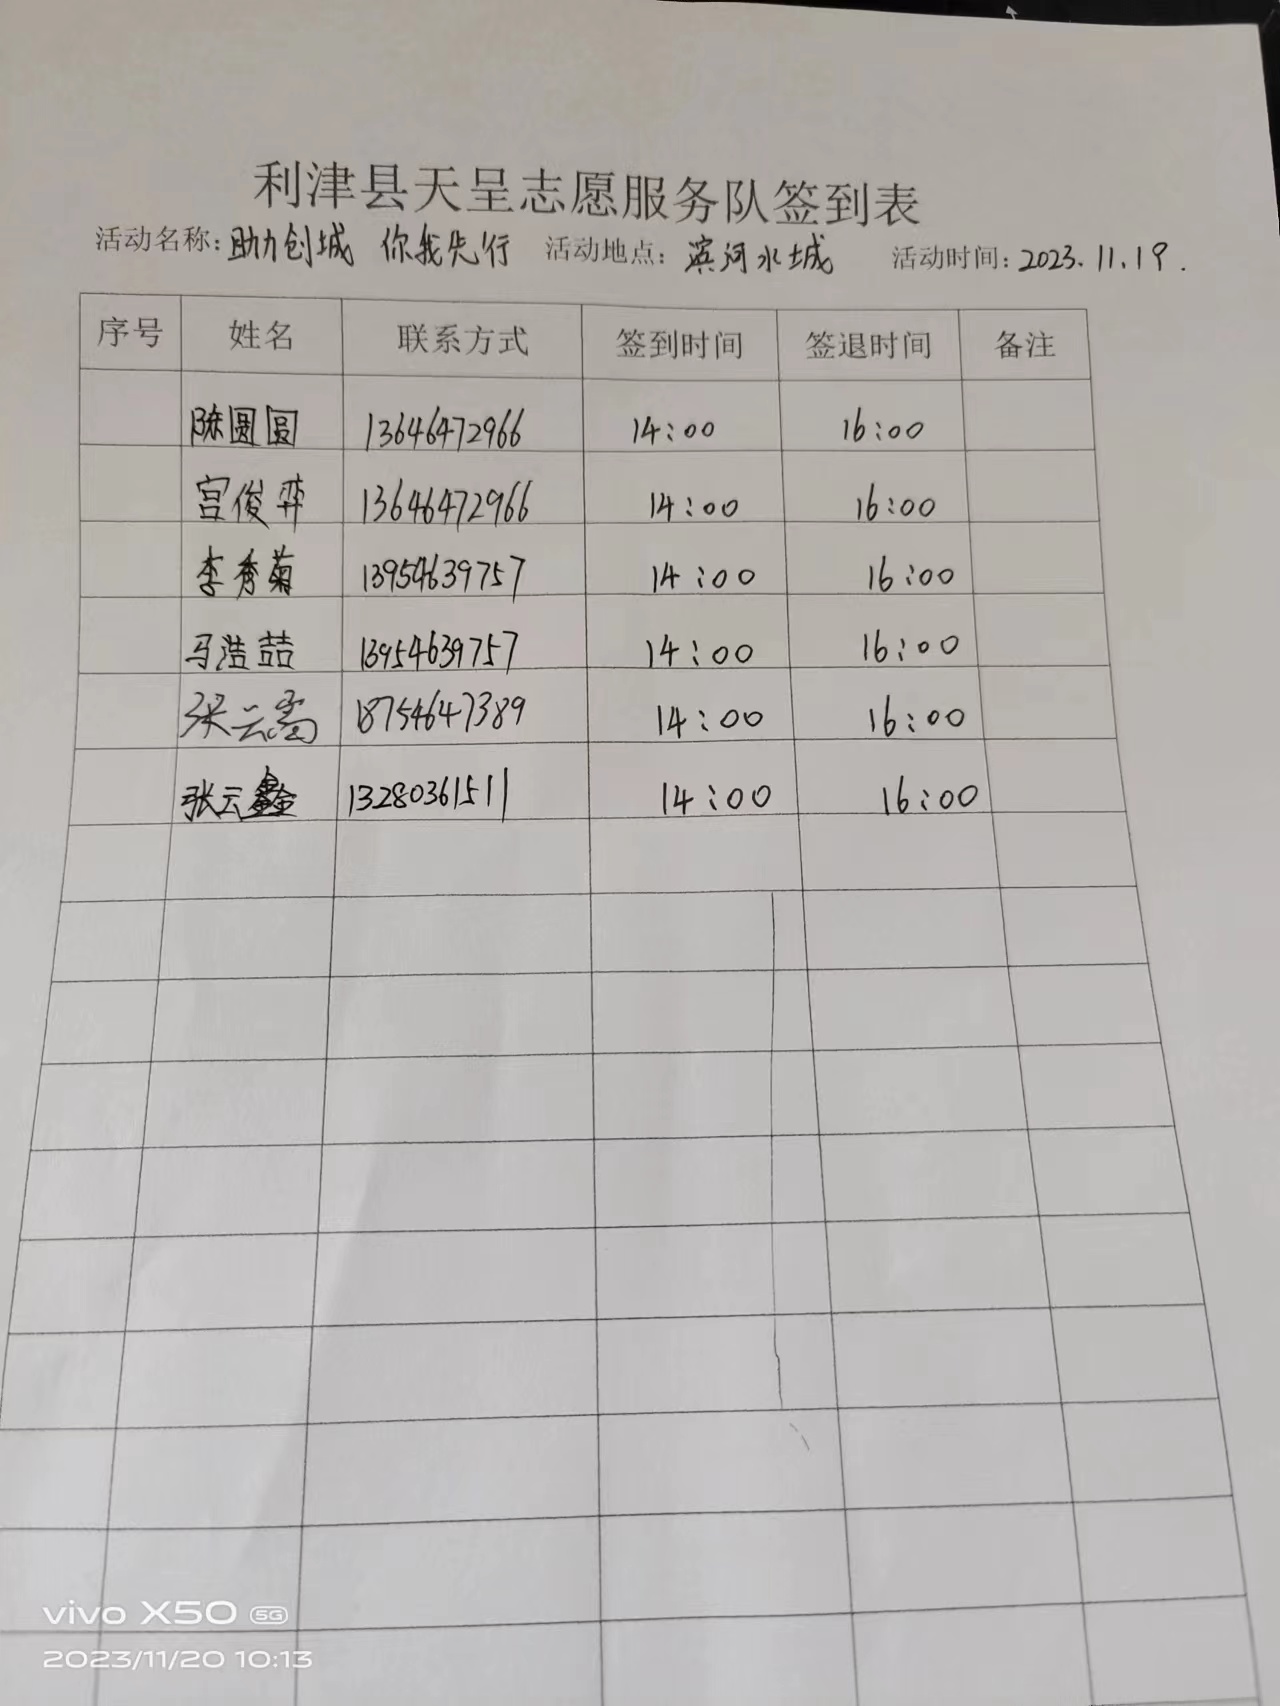 利津县天呈志愿服务队签到表
活动名称: 助力创城 你我先行 活动地点: 滨河水城 活动时间: 2023.11.19.
序号 姓名 联系方式 签到时间 签退时间 备注
陈圆圆 13646472966 14:00 16:00
宫俊弈 13646472966 14:00 16:00
李秀菊 13954639757 14:00 16:00
马浩喆 13954639757 14:00 16:00
张云 18754647389 14:00 16:00
张云鑫 13280361511 14:00 16:00
vivo X50 5G
2023/11/20 10:13